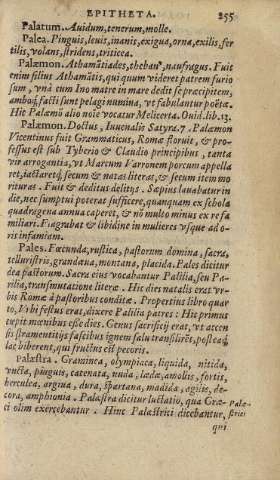 EPITHETA. 255
Palatum. Auidum, tenerum, molle.
Palea. Pinguis, leuis, inanis, exigua, orna, exilis, fer
tilis, volans, stridens, triticea.
Palæmon. Athamãtiades, theban⁹, naufragus. Fuit
enim filius Athamãtis, qui quum videret patrem furio
sum, vnà cum Ino matre in mare dedit se præcipitem,
ambóq; facti sunt pelagi numina, vt fabulantur poëtæ.
Hic Palæmõ alio noïe vocatur Melicerta. Ouid. lib. 13.
Palæmon. Doctus, Iuuenalis Satyra. 7. Palæmon
Vicentinus fuit Grammaticus, Romæ floruit, & pro-
fessus est sub Tyberio & Claudio principibus, tanta
vir arrogantia, vt Marcum Varronem porcum appella
ret, iactaretq; secum & natas literas, & secum item mo
rituras. Fuit & deditus delitijs. Sæpius lauabatur in
die, nec sumptui poterat sufficere, quanquam ex schola
quadragena annua caperet, & nõ multo minus ex re fa
miliari. Flagrabat & libidine in mulieres vsque ad o-
ris infamiam.
Pales. Fæcunda, rustica, pastorum domina, sacra,
tellustris, grandæua, montana, placida. Pales dicitur
dea pastorum. Sacra eius vocabantur Palilia, seu Pa-
rilia, transmutatione literæ. Hic dies natalis erat vr-
bis Romæ à pastoribus conditæ. Propertius libro quar
to, Vrbi festus erat, dixere Palilia patres: Hic primus
cœpit mœnibus esse dies. Genus sacrificij erat, vt accen
sis stramentitijs fascibus ignem saltu transilirẽt, postea q;
lac biberent, qui fructus est pecoris.
Palæstra. Graminea, olympiaca, liquida, nitida,
vncta, pinguis, catenata, nuda, lædæa, amolis, fortis,
herculea, argiua, dura, spartana, madida, agilis, de-
cora, amphionia. Palæstra dicitur luctatio, qua Græ-
ci olim exercebantur. Hinc Palæstrici dicebantur,
Palæ-
strici
qui